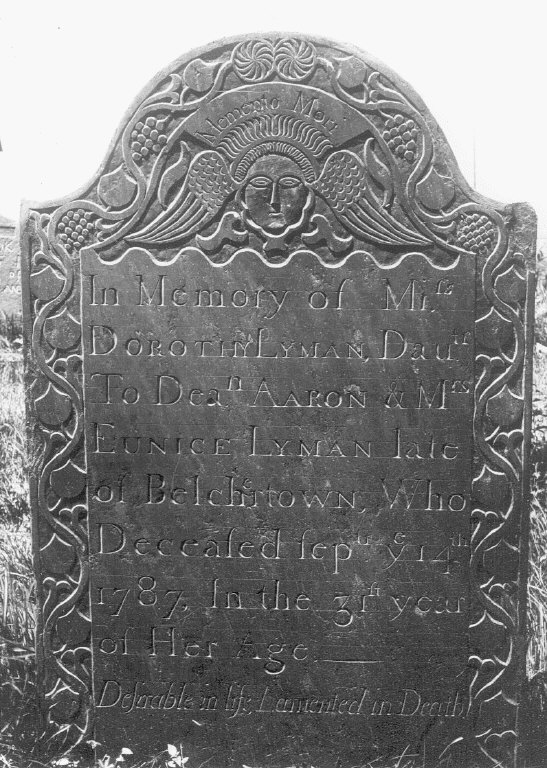 Memento Mori
In Memory of Miſs
DOROTHY LYMAN, Dautr
To Dean AARON & Mrs
EUNICE LYMAN late
of Belchertown, Who
Deceaſed ſeptr ye 14th
1787, In the 31ſt year
of Her Age
Deſirable in life, Lamented in Death